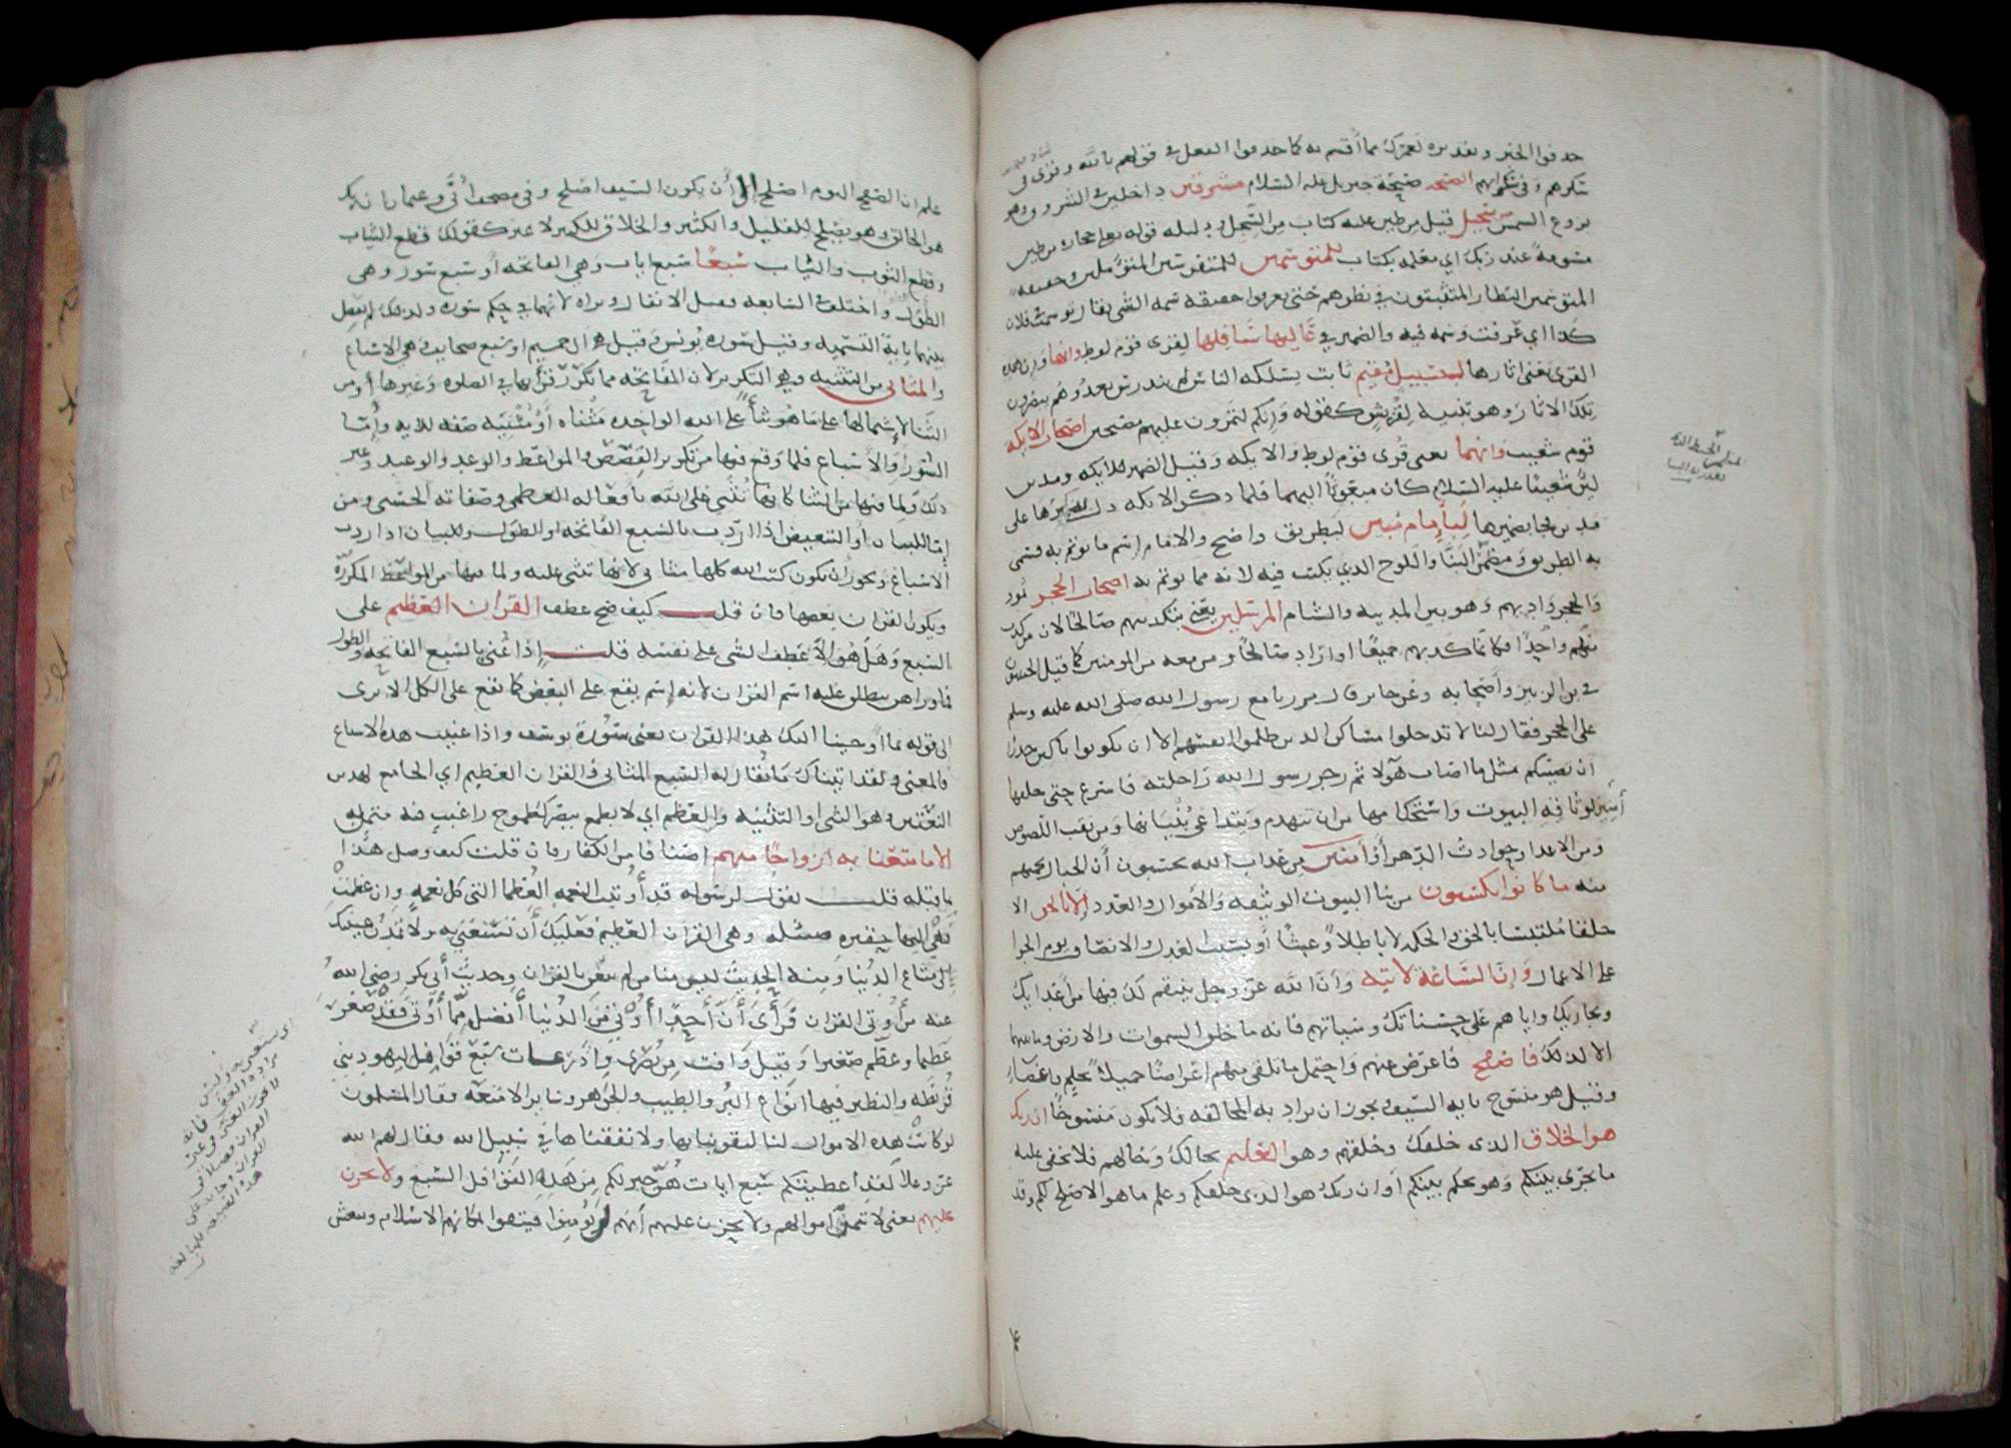 حذفوا الخبر وتقديره لعمرك مما أقسم به كما حذفوا الفعل في قولهم بالله وقرئ في
سكرهم وفي سكراتهم الصيحة صيحة جبريل عليه السلام مشرقين داخلين في الشروق وهو
بزوغ الشمس من سجيل قيل من طين عليه كتاب من السجل ودليله قوله تعالى حجارة من طين
مسومة عند ربك أي معلمة بكتاب للمتوسمين للمتفرسين المتأملين وحقيقة
المتوسمين النظار المتثبتون في نظرهم حتى يعرفوا حقيقة سمة الشي يقال توسمت في فلان
كذا اي عرفت وسمه فيه والضمير في عاليها سافلها لقرى قوم لوط وانها وان هذه
القرى يعني اثارها لبسبيل مقيم ثابت يسلكه الناس لم يندرس بعد وهم يبصرون
تلك الاثار وهو تنبيه لقريش كقوله وانكم لتمرون عليهم مصبحين اصحاب الايكة
قوم شعيب وانهما يعنى قرى قوم لوط والايكه وقيل الضمير للايكه ومدين
لان شعيبا عليه السلام كان مبعوثا اليهما فلما ذكر الايكه دل بذكرها على
مدين فجا بضميرها لبإمام مبين لبطريق واضح والامام اسم ما يوتم به فسمى
به الطريق ومطمر البنا واللوح الذي يكتب فيه لانه مما يوتم به اصحاب الحجر ثمود
والحجر واديهم وهو بين المدينه والشام المرسلين يعني بتكذيبهم صالحا لان من كذب
منهم واحدا فكانما كذبهم جميعا او اراد صالحا ومن معه من المومنين كما قيل الخبيبون
في بن الزبير واصحابه وعن جابر قال مررنا مع رسول الله صلى الله عليه وسلم
على الحجر فقال لنا لا تدخلوا مساكن الذين ظلموا انفسهم الا ان تكونوا باكين حذرا
ان يصيبكم مثل ما اصاب هولا ثم زجر رسول الله راحلته فاسرع حتى خلفها
آمنين لوثاقة البيوت واستحكامها من ان تنهدم ويتداعى بنيانها ومن نقب اللصوص
ومن الاعدا وحوادث الدهر أو آمنين من عذاب الله يحسبون أن الجبال تحميهم
منه ما كانوا يكسبون من بنا البيوت الوثيقه والأموال والعدد إلا بالحق الا
خلقا ملتبسا بالحق والحكمه لا باطلا وعبثا أو بسبب العدل والانصاف يوم الجزا
على الاعمال وان الساعة لاتية وأن الله عز وجل ينتقم لك فيها من أعدايك
ويجازيك واياهم على حسناتك وسياتهم فانه ما خلق السموات والارض وما بينهما
الا لذلك فاصفح فاعرض عنهم واحتمل ما تلقى منهم اعراضا جميلا بحلم واغضاء
وقيل هو منسوخ باية السيف ويجوز ان يراد به المخالقه فلا يكون منسوخا ان ربك
هو الخلاق الذى خلقك وخلقهم وهو العليم بحالك وحالهم فلا يخفى عليه
ما يجرى بينكم وهو يحكم بينكم أو ان ربك هو الذي خلقكم وعلم ما هو الاصلح لكم وقد
علم ان الصفح اليوم اصلح إلى أن يكون السيف اصلح وفي مصحف أبي وعثمان ان ربك
هو الخالق وهو يصلح للقليل والكثير والخلاق للكثير لا غير كقولك قطع الثياب
وقطع الثوب والثياب سبعا سبع ايات وهي الفاتحه أو سبع سور وهي
الطول واختلف في السابعه فقيل الانفال وبراه لانهما في حكم سوره ولذلك لم يفصل
بينهما بآية التسميه وقيل سوره يونس وقيل هي ال حميم او سبع صحايف وهي الاسباع
والمثاني من التثنيه وهي التكرير لان الفاتحه مما تكرر قراتها في الصلوه وغيرها أو من
الثنا لاشتمالها على ما هو ثنا على الله الواحده مثناه أو مثنيه صفه للايه وأما
السور أو الأسباع فلما وقع فيها من تكرير القصص والمواعظ والوعد والوعيد وغير
ذلك ولما فيها من الثنا كانها تثنى على الله بافعاله العظمى وصفاته الحسنى ومن
إما للبيان أو للتبعيض اذا اردت بالسبع الفاتحه او الطول وللبيان اذا اردت
الاسباع ويجوز أن يكون كتب الله كلها مثانى لانها تثنى عليه ولما فيها من المواعظ المكرره
ويكون القران بعضها فان قلت كيف صح عطف القران العظيم على
السبع وهل هو الا عطف الشى على نفسه قلت إذا عنى بالسبع الفاتحه والطول
فما وراهن ينطلق عليه اسم القران لانه إسم يقع على البعض كما يقع على الكل الا ترى
الى قوله بما أوحينا اليك هذا القران يعنى سورة يوسف واذا عنيت هذه الاسباع
فالمعنى ولقد اتيناك ما يقال له السبع المثانى والقران العظيم اي الجامع لهذين
النعتين وهو الثنى او التثنيه والعظم اي لا يطمح ببصرك طموح راغب فيه متمن له
الى ما متعنا به ازواجا منهم اصنافا من الكفار فان قلت كيف وصل هذا
بما قبله قلت يقول لرسوله قد أوتيت النعمه العظما التى كل نعمه وان عظمت
فهى اليها حقيره ضئيله وهى القران العظيم فعليك أن تستغنى به ولا تمدن عينيك
إلى متاع الدنيا ومنه الحديث ليس منا من لم يتغن بالقران وحديث أبى بكر رضى الله
عنه من أوتى القران فرأى أن أحدا أوتي من الدنيا أفضل مما أوتى فقد صغر
عظيما وعظم صغيرا وقيل وافت من بصرى وأذرعات سبع قوافل ليهود بني
قريظه والنظير فيها انواع البر والطيب والجوهر وساير الامتعه فقال المسلمون
لو كانت هذه الاموال لنا لتقوينا بها ولانفقناها في سبيل الله فقال لهم الله
عز وعلا لقد أعطيتكم سبع ايات هي خير لكم من هذه القوافل السبع ولا تحزن
عليهم يعنى لا تتمن اموالهم ولا تحزن عليهم أنهم لم يؤمنوا فيتقوى بمكانهم الاسلام وينتعش